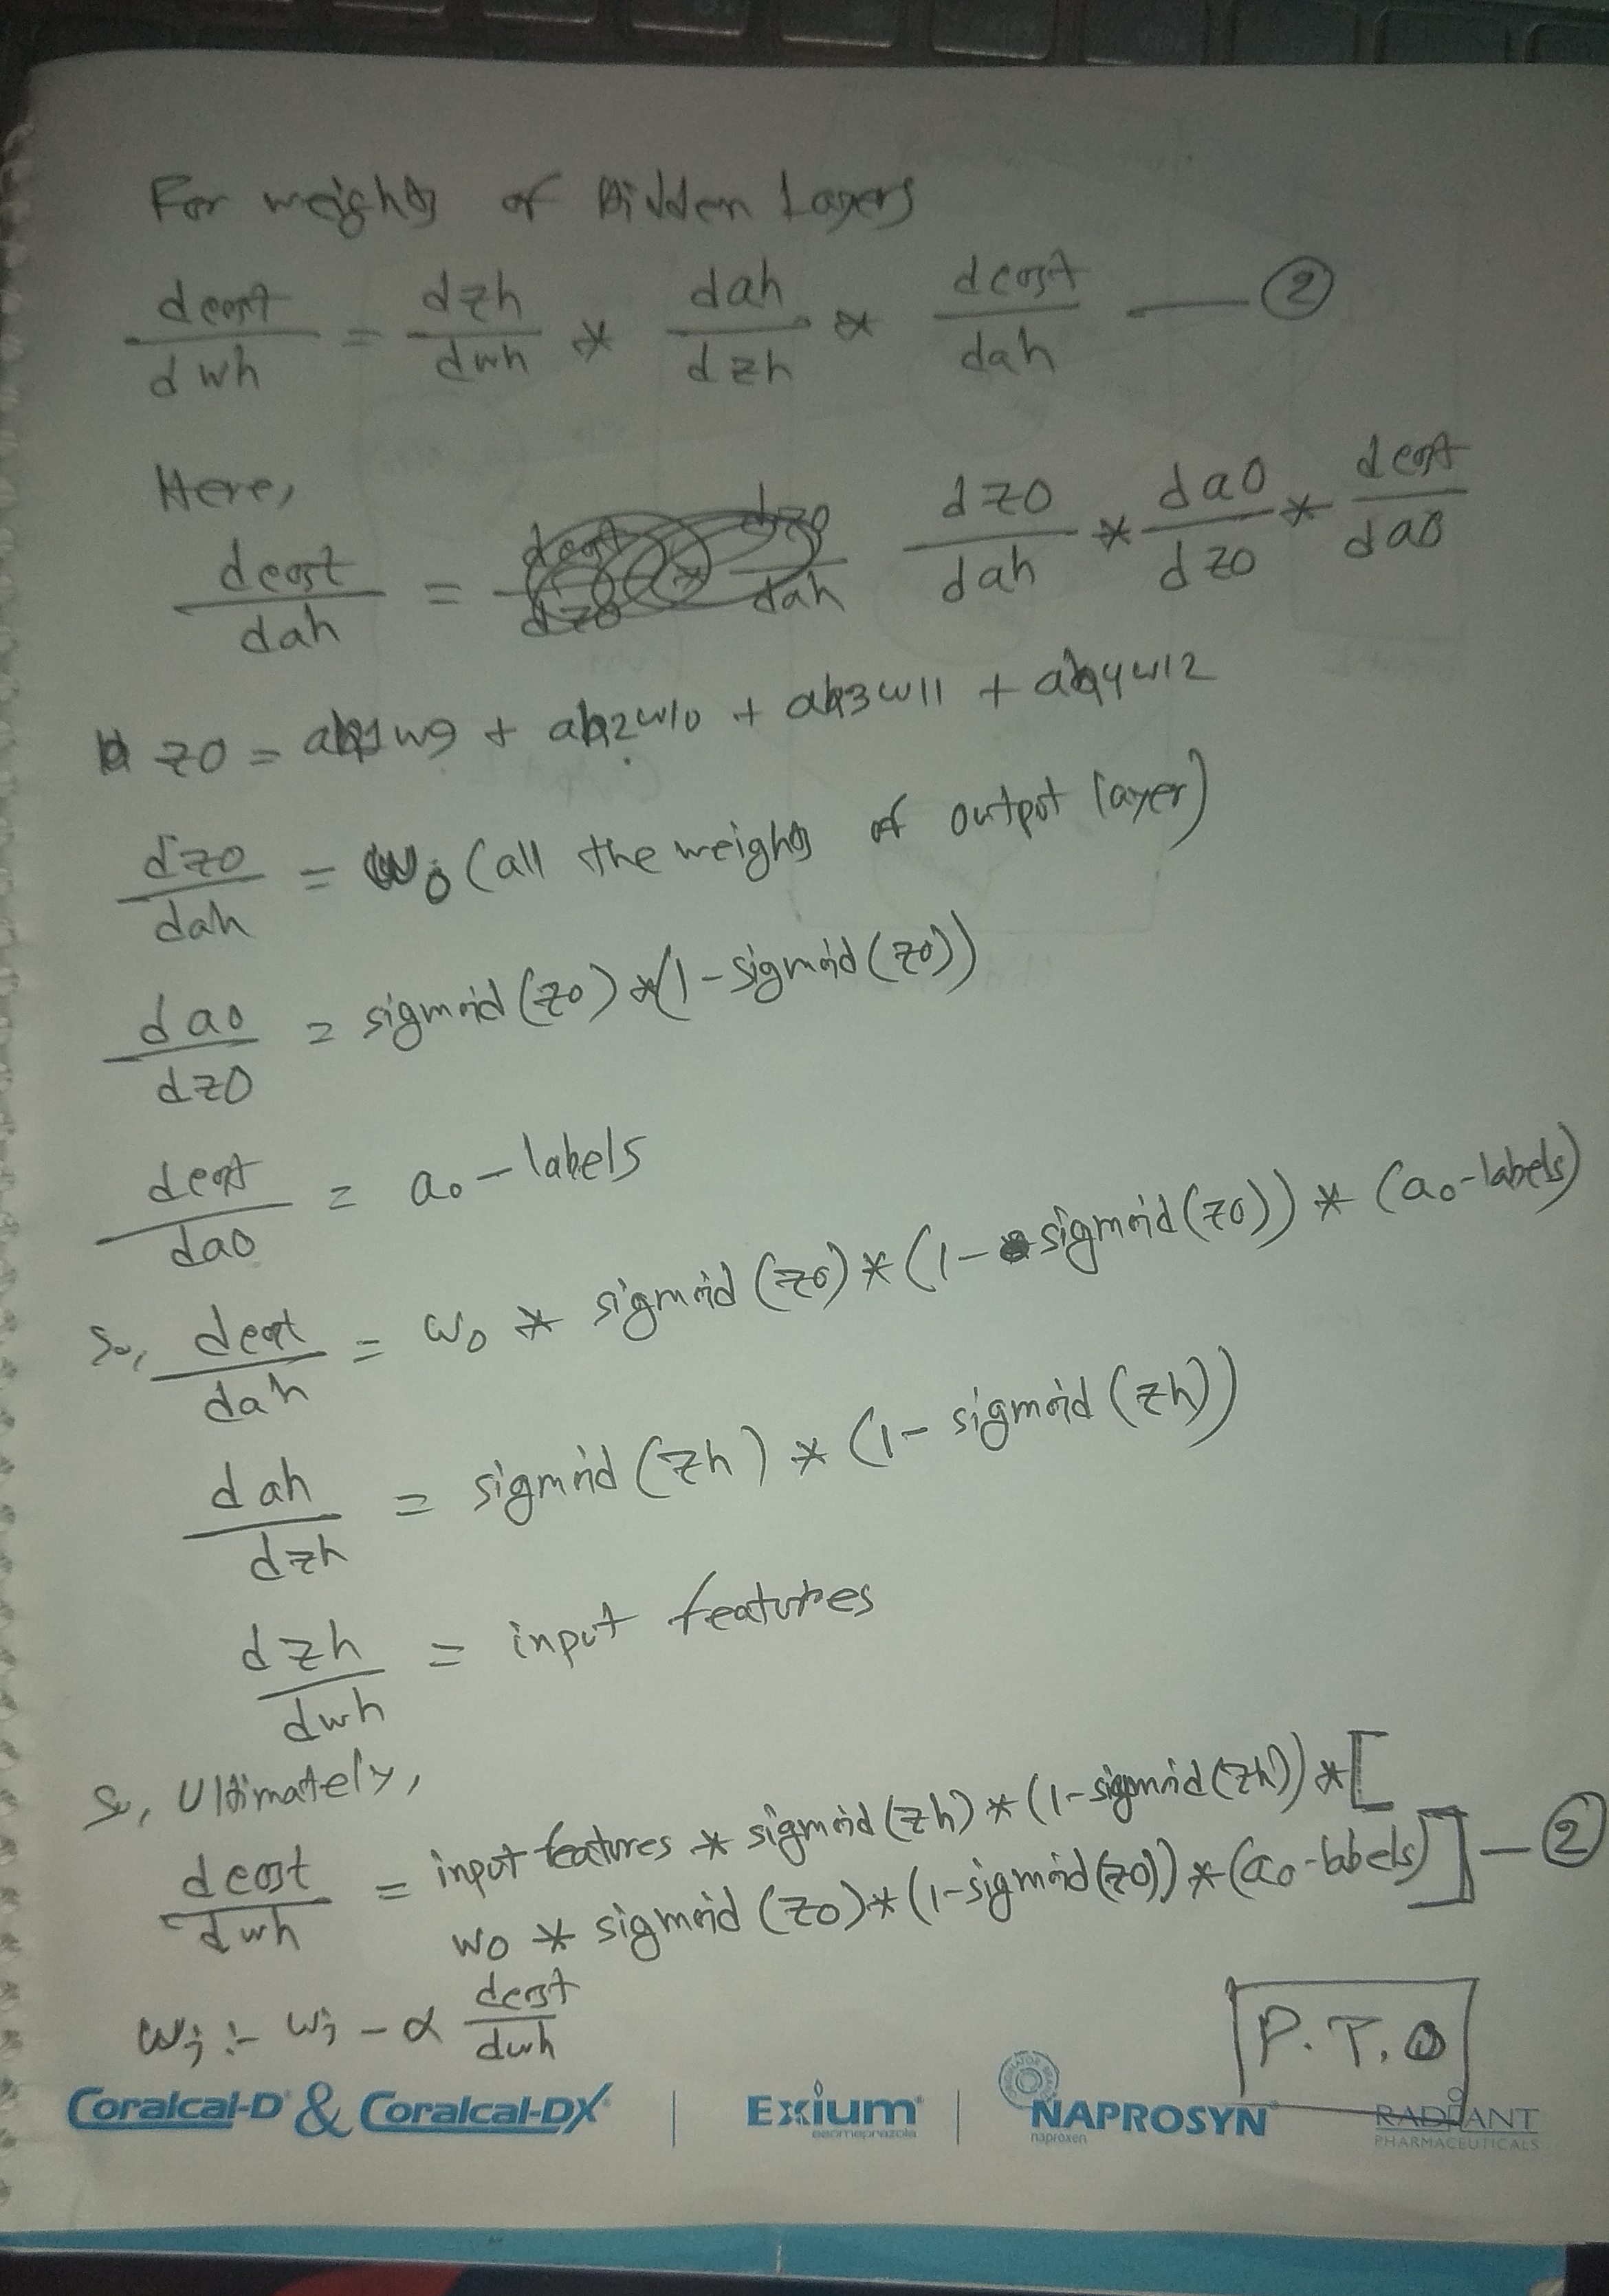 For weights of Hidden Layers
dcost/dwh = dzh/dwh * dah/dzh * dcost/dah — ②
Here,
dcost/dah = dzo/dah * dao/dzo * dcost/dao
zo = ah1w9 + ah2w10 + ah3w11 + ah4w12
dzo/dah = wo (all the weights of output layer)
dao/dzo = sigmoid(zo) * (1-sigmoid(zo))
dcost/dao = ao-labels
So, dcost/dah = wo * sigmoid(zo) * (1-sigmoid(zo)) * (ao-labels)
dah/dzh = sigmoid(zh) * (1-sigmoid(zh))
dzh/dwh = input features
So, Ultimately,
dcost/dwh = input features * sigmoid(zh) * (1-sigmoid(zh)) * [
wo * sigmoid(zo) * (1-sigmoid(zo)) * (ao-labels)] — ②
wj :- wj - α dcost/dwh
P.T.O
Coralcal-D & Coralcal-DX
Exium
esomeprazole
NAPROSYN
naproxen
RADIANT
PHARMACEUTICALS